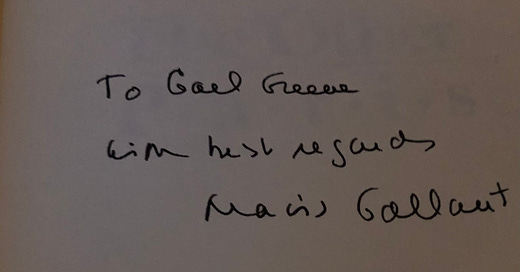 To Gael Greene
with best regards
Mavis Gallant